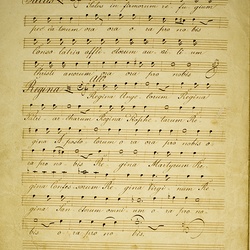 Salus in firmorum re fu gium
pec ca torum ora ora o ra pro no bis
conso latrix afflic torum au xi li um
Christi anorum ora ora pro nobis
Regina Allo
Regina Ange lorum Regina
Patri archarum Regina Prophe tarum Re
gina Aposto lorum o ra ora pro nobis o
ra pro no bis Re gina Martyrum Re
gina Confes sorum Re gina Virgi num Re
gina San ctorum omni um o ra pro no
bis o ra pro no bis